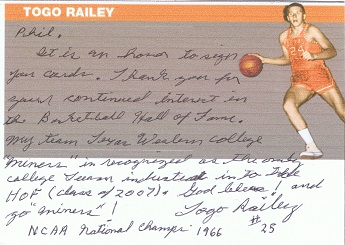 TOGO RAILEY
Phil.
It is an honor to sign
your cards. Thank you for
your continued interest in
the Basketball Hall of Fame.
My team Texas Western College
"Miners" is recognized as the only
college team inducted in to the
HOF (class of 2007). God bless! and
go "Miners"!
Togo Railey
#25
NCAA National Champs 1966